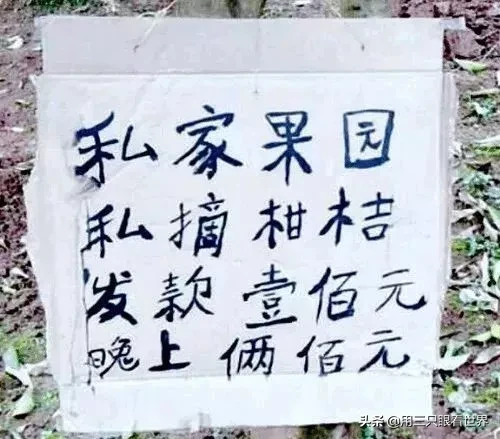 私家果园
私摘柑桔
发款壹佰元
晚上俩佰元
头条 @用三只眼看世界